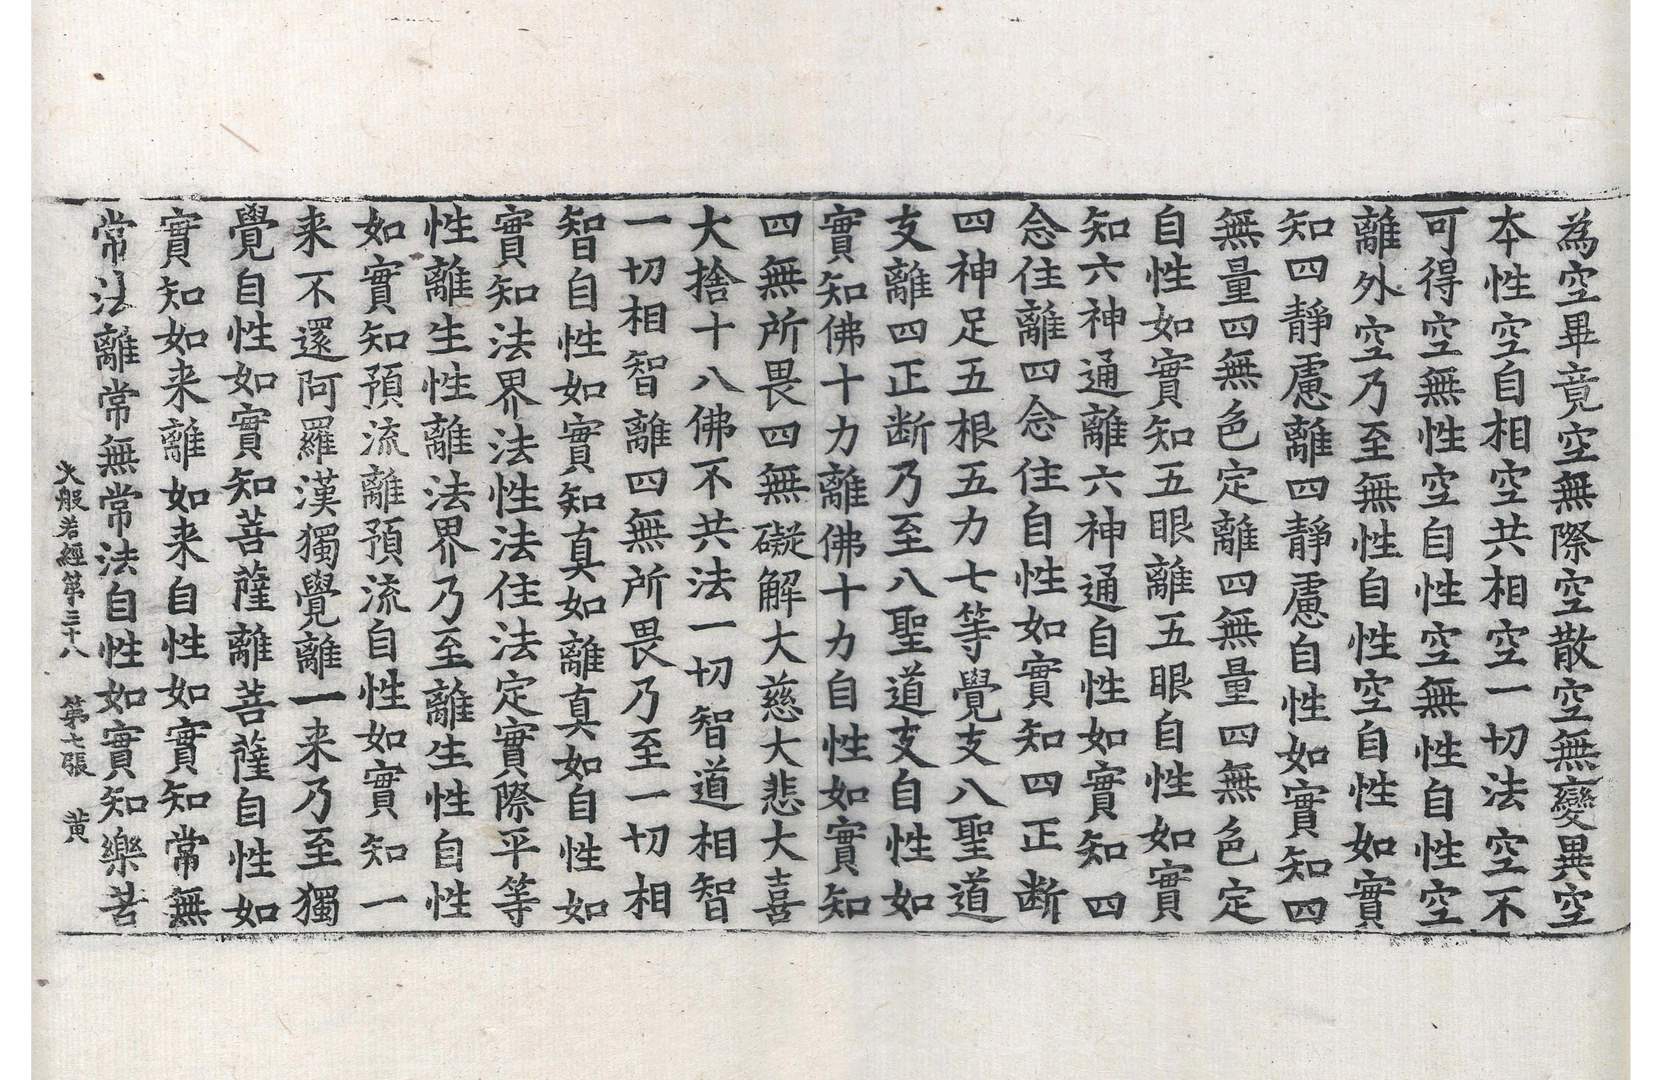 為空畢竟空無際空散空無變異空
本性空自相空共相空一切法空不
可得空無性空自性空無性自性空
離外空乃至無性自性空自性如實
知四靜慮離四靜慮自性如實知四
無量四無色定離四無量四無色定
自性如實知五眼離五眼自性如實
知六神通離六神通自性如實知四
念住離四念住自性如實知四正斷
四神足五根五力七等覺支八聖道
支離四正斷乃至八聖道支自性如
實知佛十力離佛十力自性如實知
四無所畏四無礙解大慈大悲大喜
大捨十八佛不共法一切智道相智
一切相智離四無所畏乃至一切相
智自性如實知真如離真如自性如
實知法界法性法住法定實際平等
性離生性離法界乃至離生性自性
如實知預流離預流自性如實知一
来不還阿羅漢獨覺離一来乃至獨
覺自性如實知菩薩離菩薩自性如
實知如来離如来自性如實知常無
常法離常無常法自性如實知樂苦
大般若經第三十八 第七張 黄